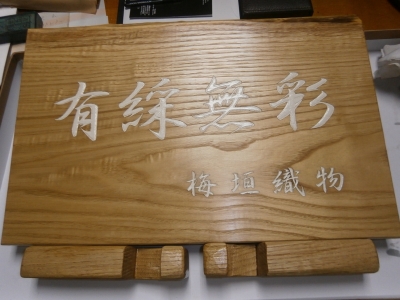 有綵無彩
梅垣織物